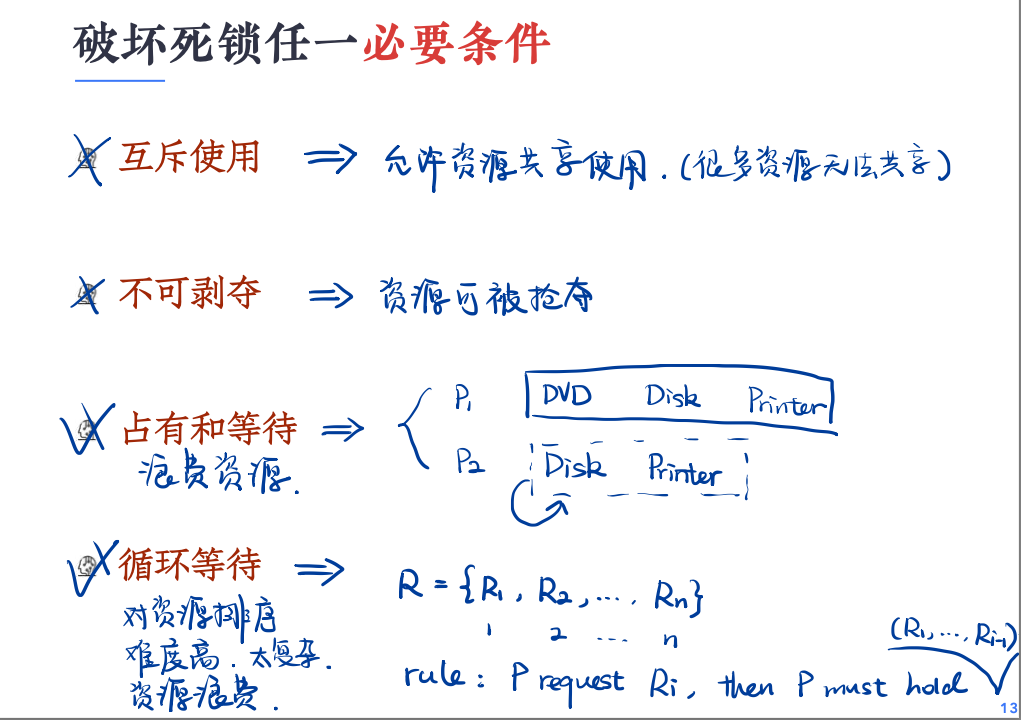 破坏死锁任一必要条件
互斥使用 ⇒ 允许资源共享使用.(很多资源无法共享)
不可剥夺 ⇒ 资源可被抢夺
占有和等待 ⇒ { P1 DVD Disk Printer
浪费资源. P2 Disk Printer
循环等待 ⇒
R = {R1, R2, ..., Rn}
对资源排序 1 2 ... n
(R1, ..., Ri-1)
难度高. 太复杂.
rule: P request Ri, then P must hold
资源浪费.
13